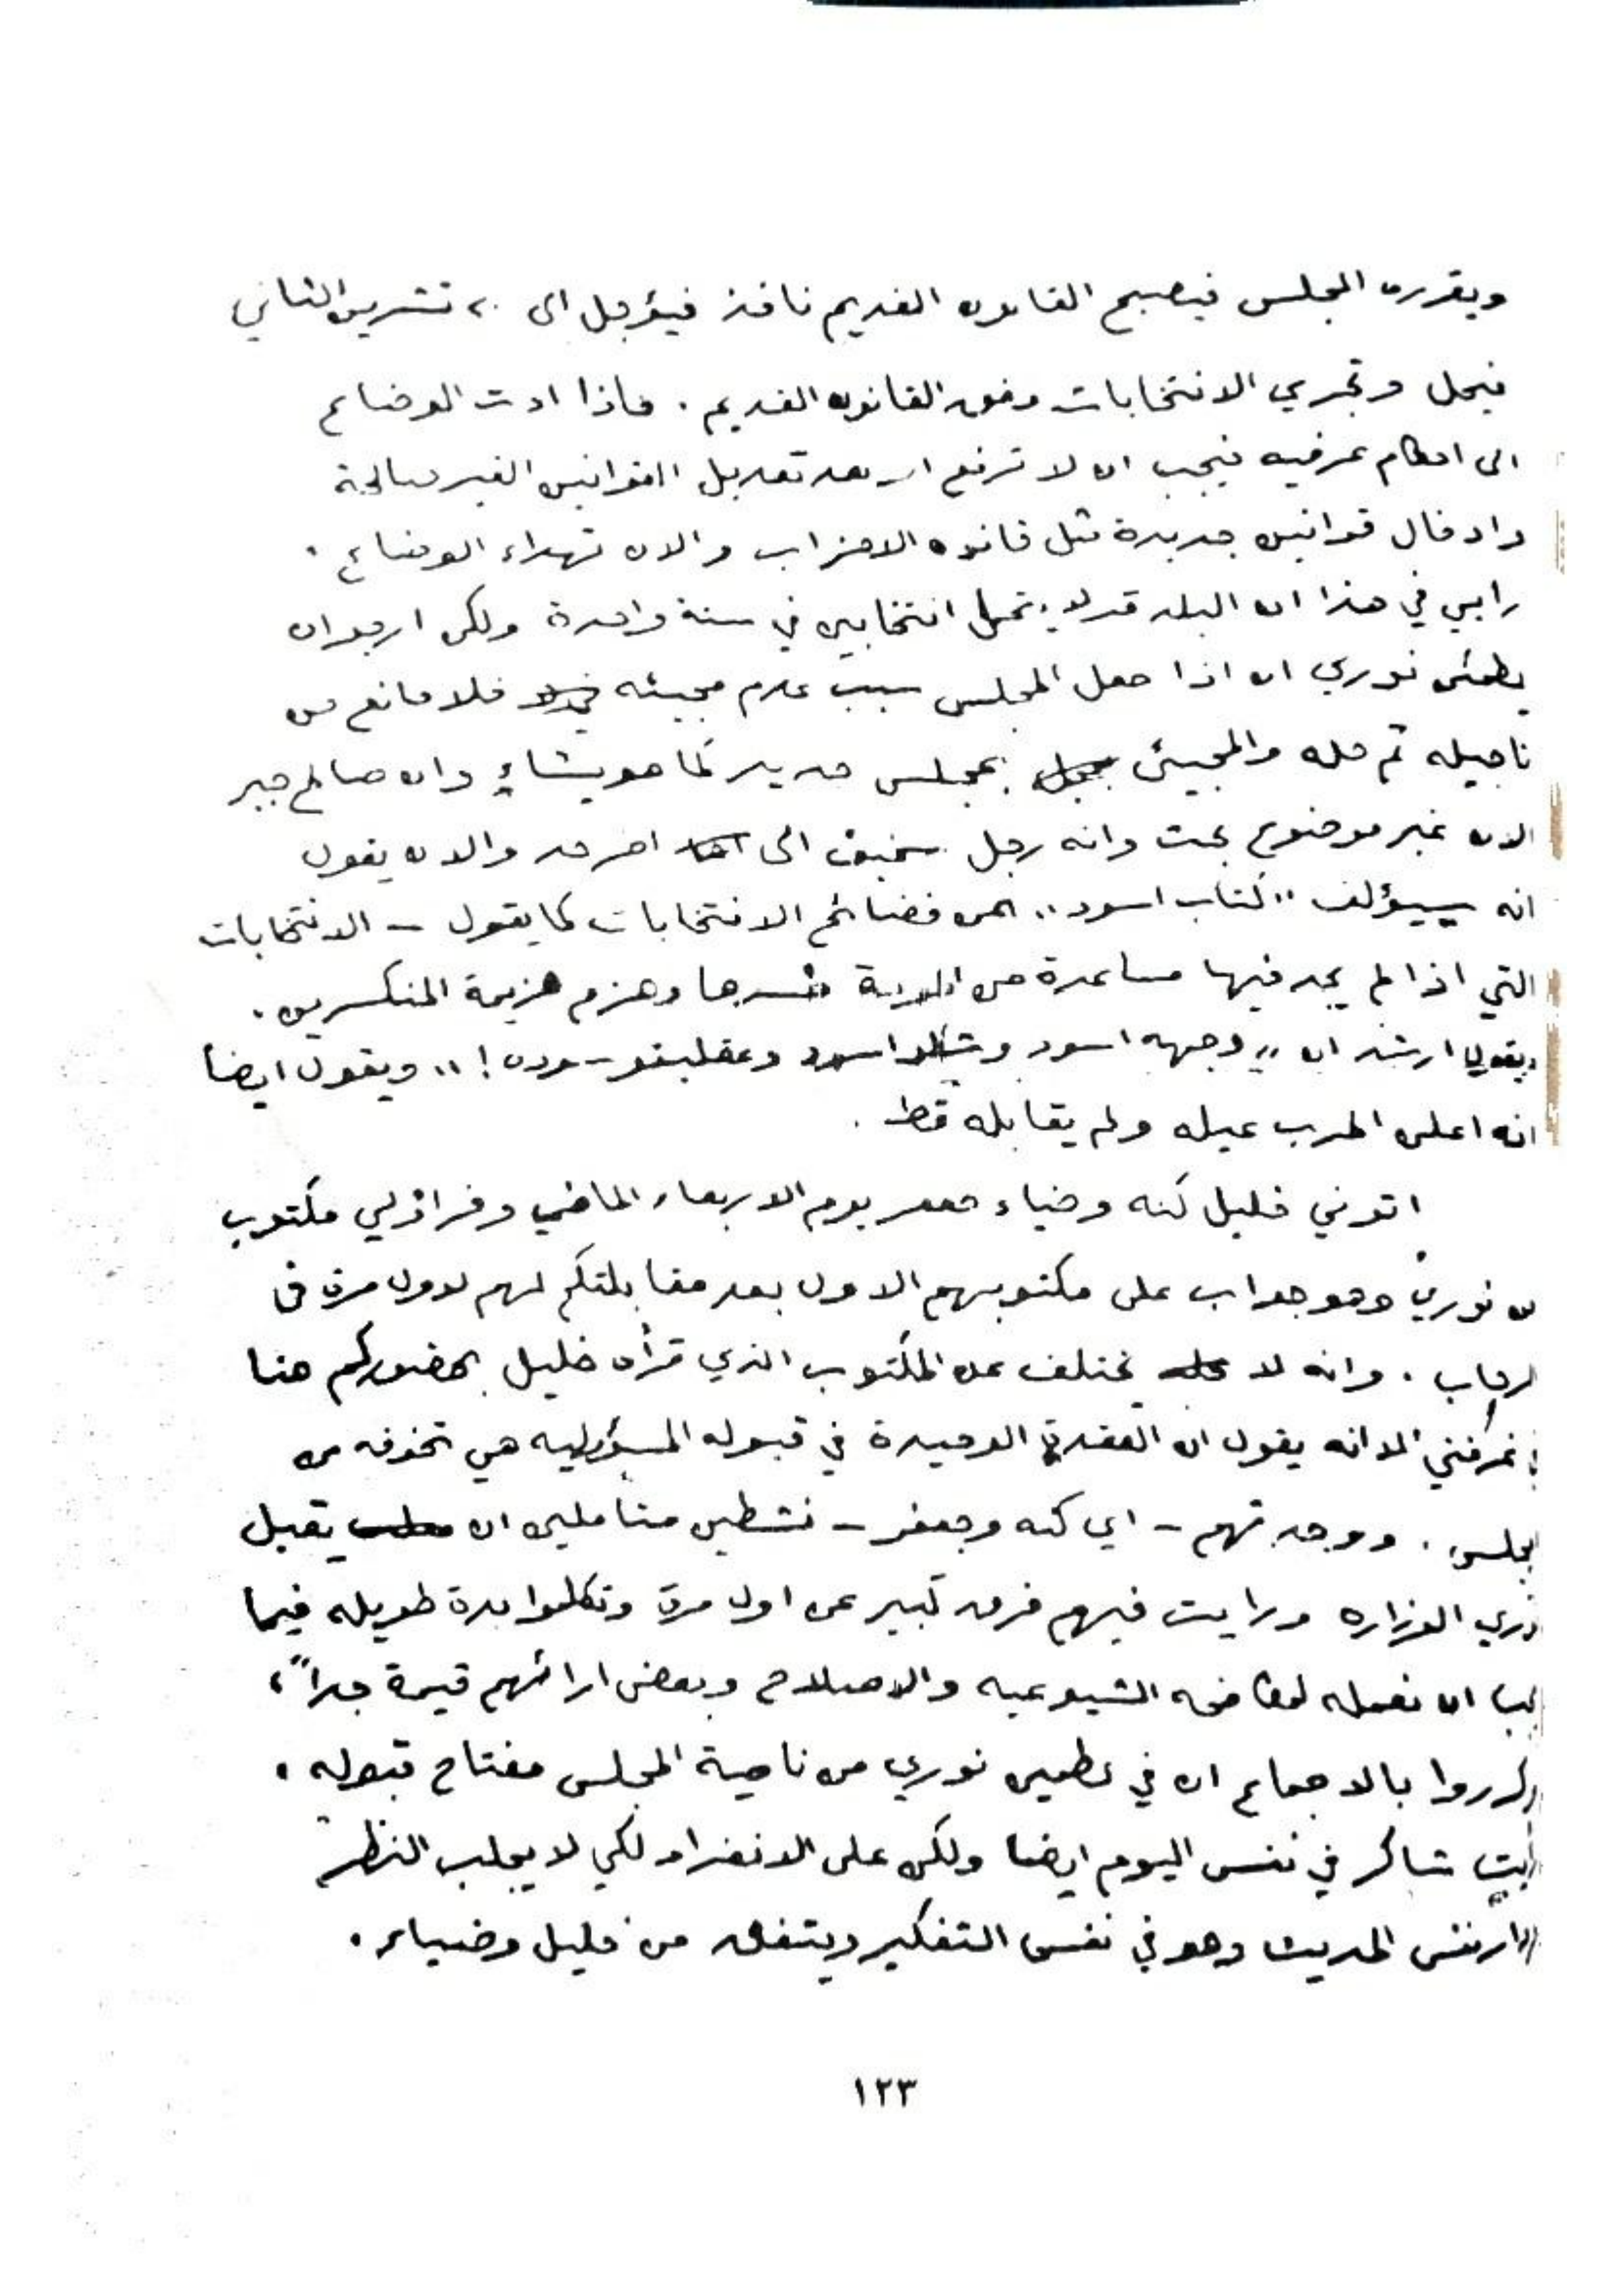 ويقرره المجلس فيصبح القانون القديم نافذ فيؤجل الى ٢٠ تشرين الثاني
فيحل وتجري الانتخابات وفق القانون القديم . فاذا ادت الوضائع
الى احكام عرفيه فيجب ان لا ترفع الا بعد تعديل القوانين الغير صالحة
وادخال قوانين جديدة مثل قانون الاحزاب والان تهداء الوضائع .
رايي في هذا ان البلد قد لا يتحمل انتخابين في سنة واحدة ولكن ارجو ان
يطمئن نوري ان اذا جعل المجلس سبب عدم مجيئه فلا مانع من
تاجيله ثم حله والمجيئ بمجلس جديد كما هو يشاء وان صالح جبر
الان غير موضوع بحث وانه رجل سخيف الى اخر حد والان يقول
انه سيؤلف "كتاب اسود" عن فضائح الانتخابات كما يقول - الانتخابات
التي اذا لم يجد فيها مساعدة من خسرها وهزم هزيمة المنكسرين .
ويقول ارشد ان "وجهه اسود و اسود وعقليتو سوده !" ويقول ايضا
انه اعلن الحرب عليه ولم يقابله قط .
اتوني خليل كنه وضياء جعفر يوم الاربعاء الماضي وقراؤلي مكتوب
من نوري وهو جواب على مكتوبهم الاول بعد مقابلتكم لهم لاول مرة في
الرحاب . وانه لا يختلف عن المكتوب الذي قرأه خليل بحضوركم هنا
في غرفتي الا انه يقول ان العقدة الوحيدة في قبوله المسؤوليه هي تخوفه من
المجلس . ووجدتهم - اي كنه وجعفر - نشطين متاملين ان يقبل
نوري الوزاره ورايت فيهم فرق كبير عن اول مرة وتكلموا مدة طويله فيما
يجب ان نعمله لمكافحه الشيوعيه والاصلاح وبعض ارائهم قيمة جداً ،
وكرروا بالاجماع ان في تطمين نوري من ناحية المجلس مفتاح قبوله .
رايت شاكر في نفس اليوم ايضا ولكن على الانفراد لكي لا يجلب النظر
ودار نفس الحديث وهو في نفس التفكير ويتفق مع خليل وضياء .
١٢٣